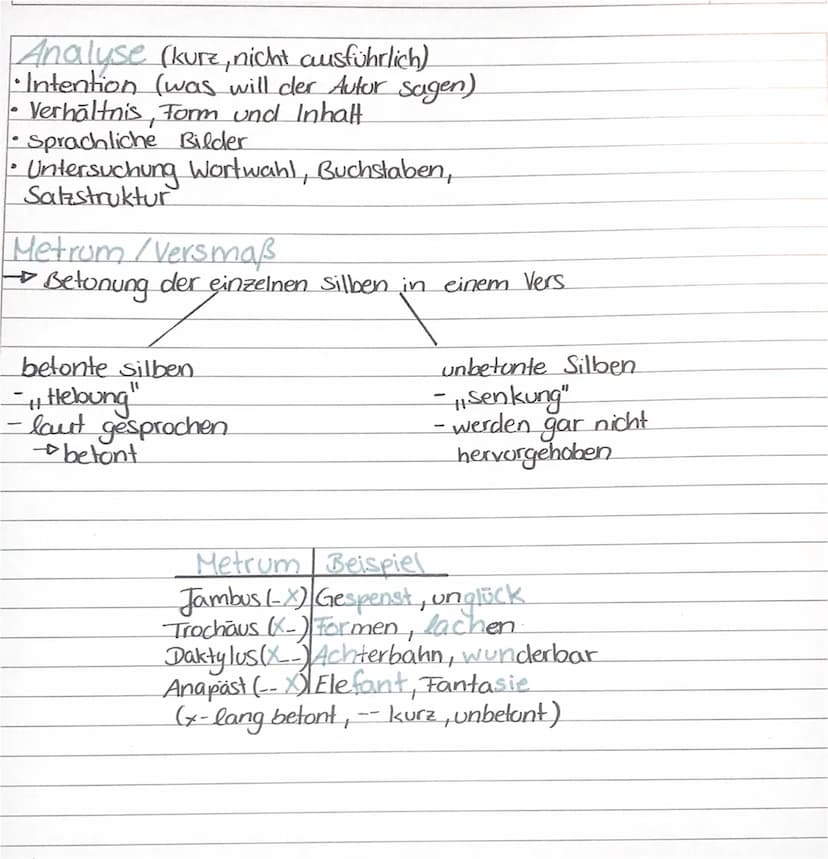 Analyse (kurz, nicht ausführlich)
• Intention (was will der Autor sagen)
• Verhältnis, Form und Inhalt
• sprachliche Bilder
• Untersuchung Wortwahl, Buchstaben,
Satzstruktur
Metrum / Versmaß
→ Betonung der einzelnen silben in einem Vers
betonte silben
- „Hebung"
- laut gesprochen
→ betont
unbetonte Silben
- „senkung"
- werden gar nicht
hervorgehoben
Metrum | Beispiel
Jambus (-X) | Gespenst, unglück
Trochäus (X-) | Formen, lachen
Daktylus (X--) | Achterbahn, wunderbar
Anapäst (-- X) | Elefant, Fantasie
(x- lang betont, -- kurz, unbetont)